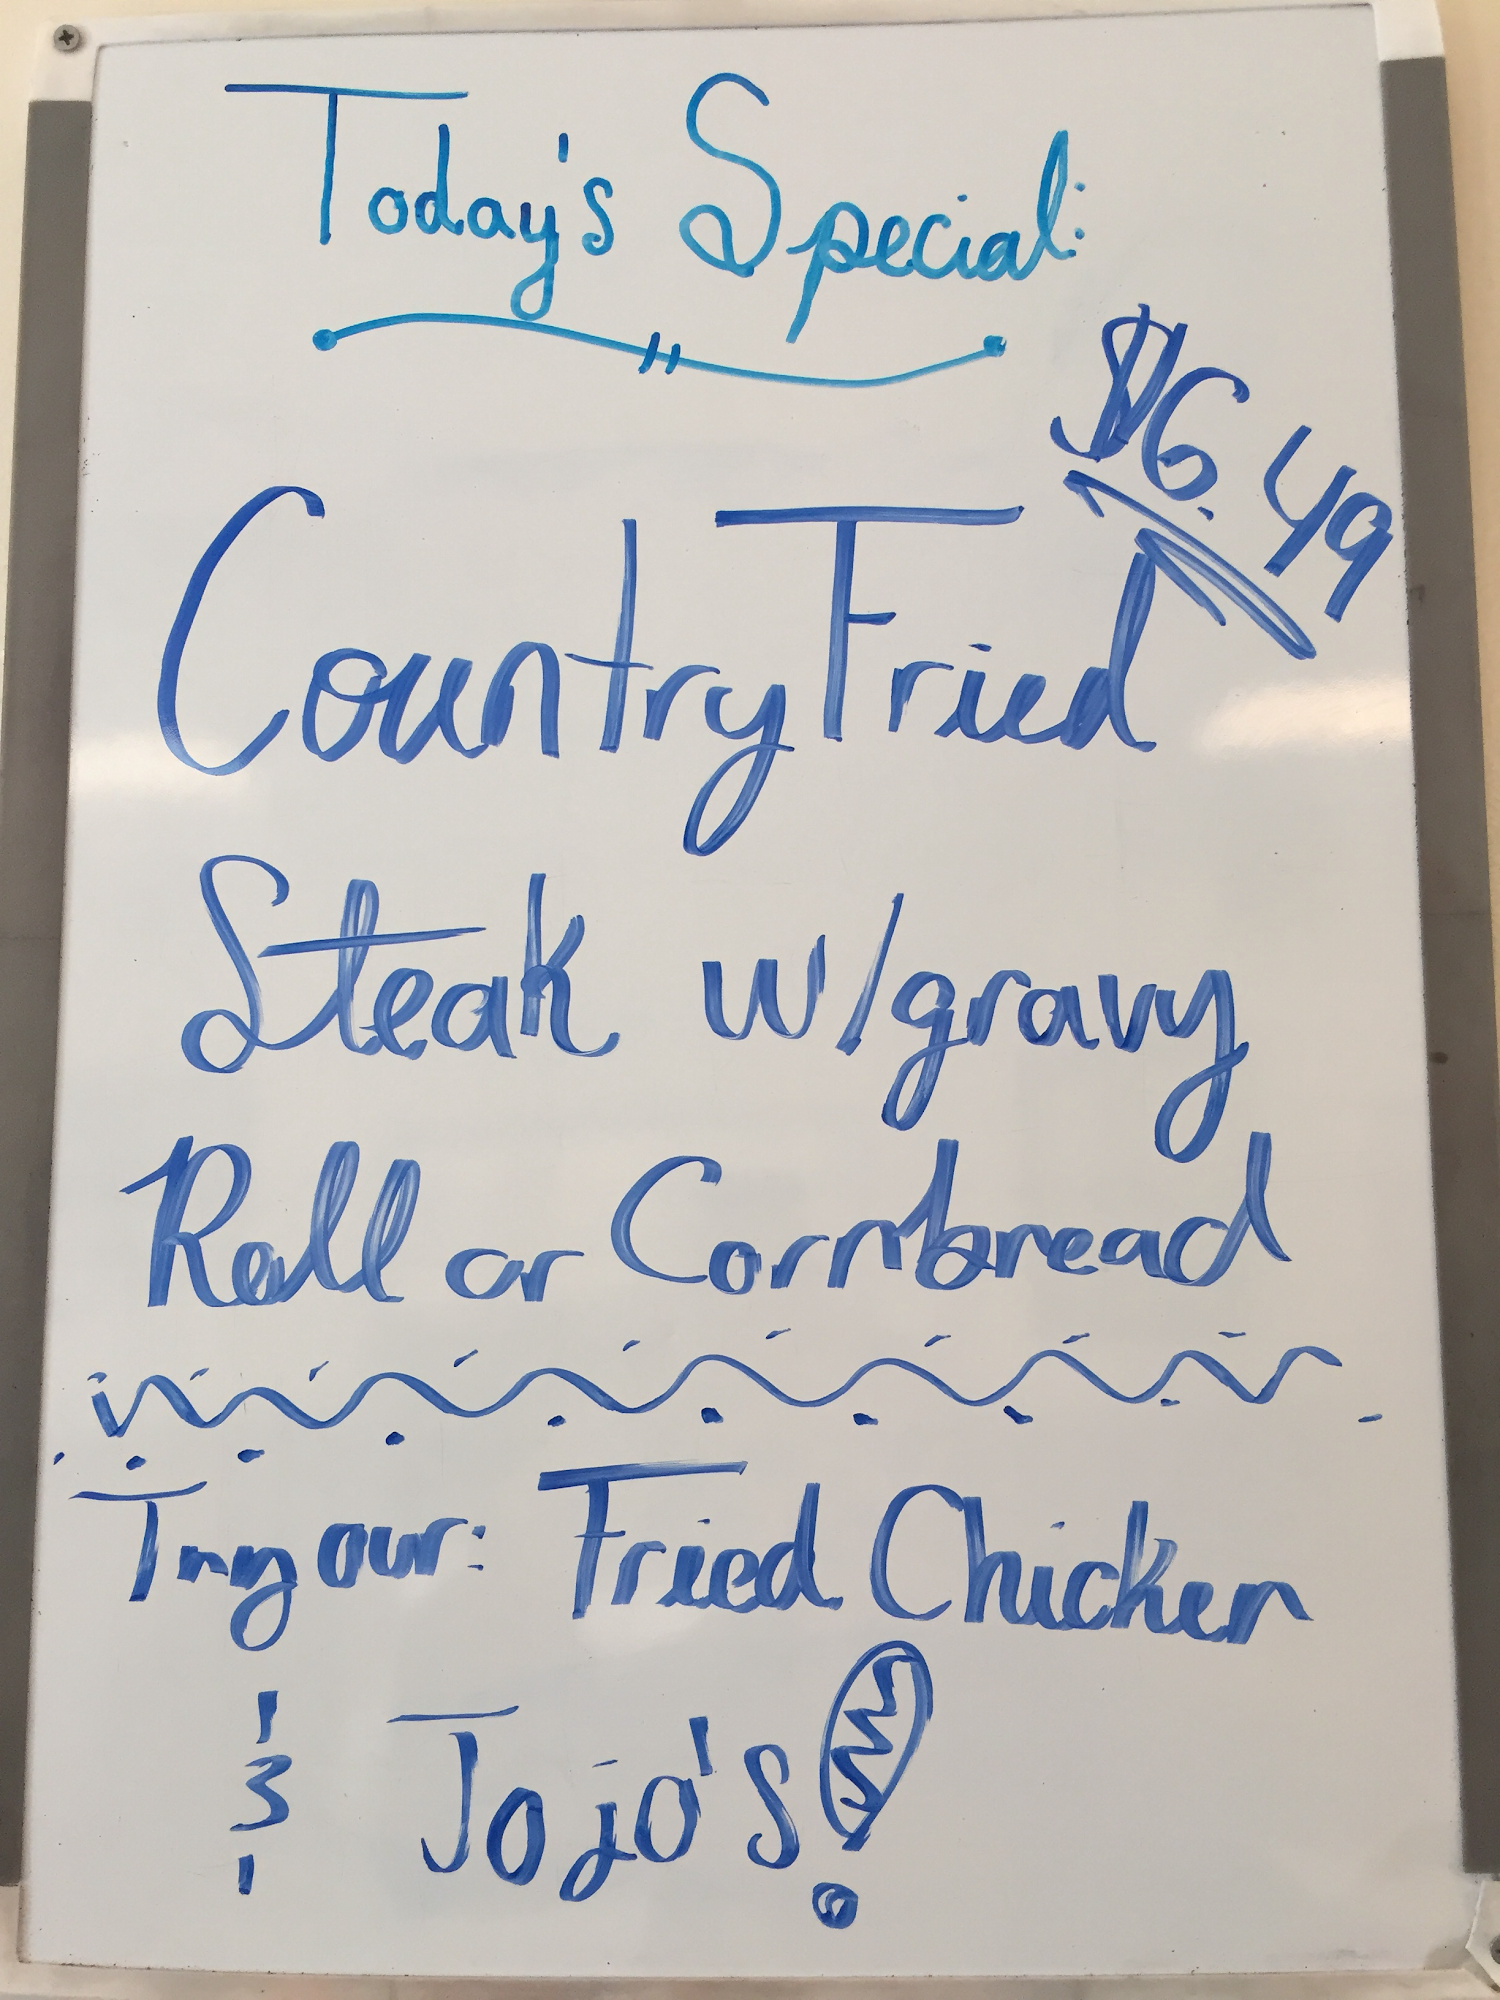 Today's Special:
$6.49
Country Fried
Steak w/gravy
Roll or Cornbread
Try our: Fried Chicken
& Jojo's!